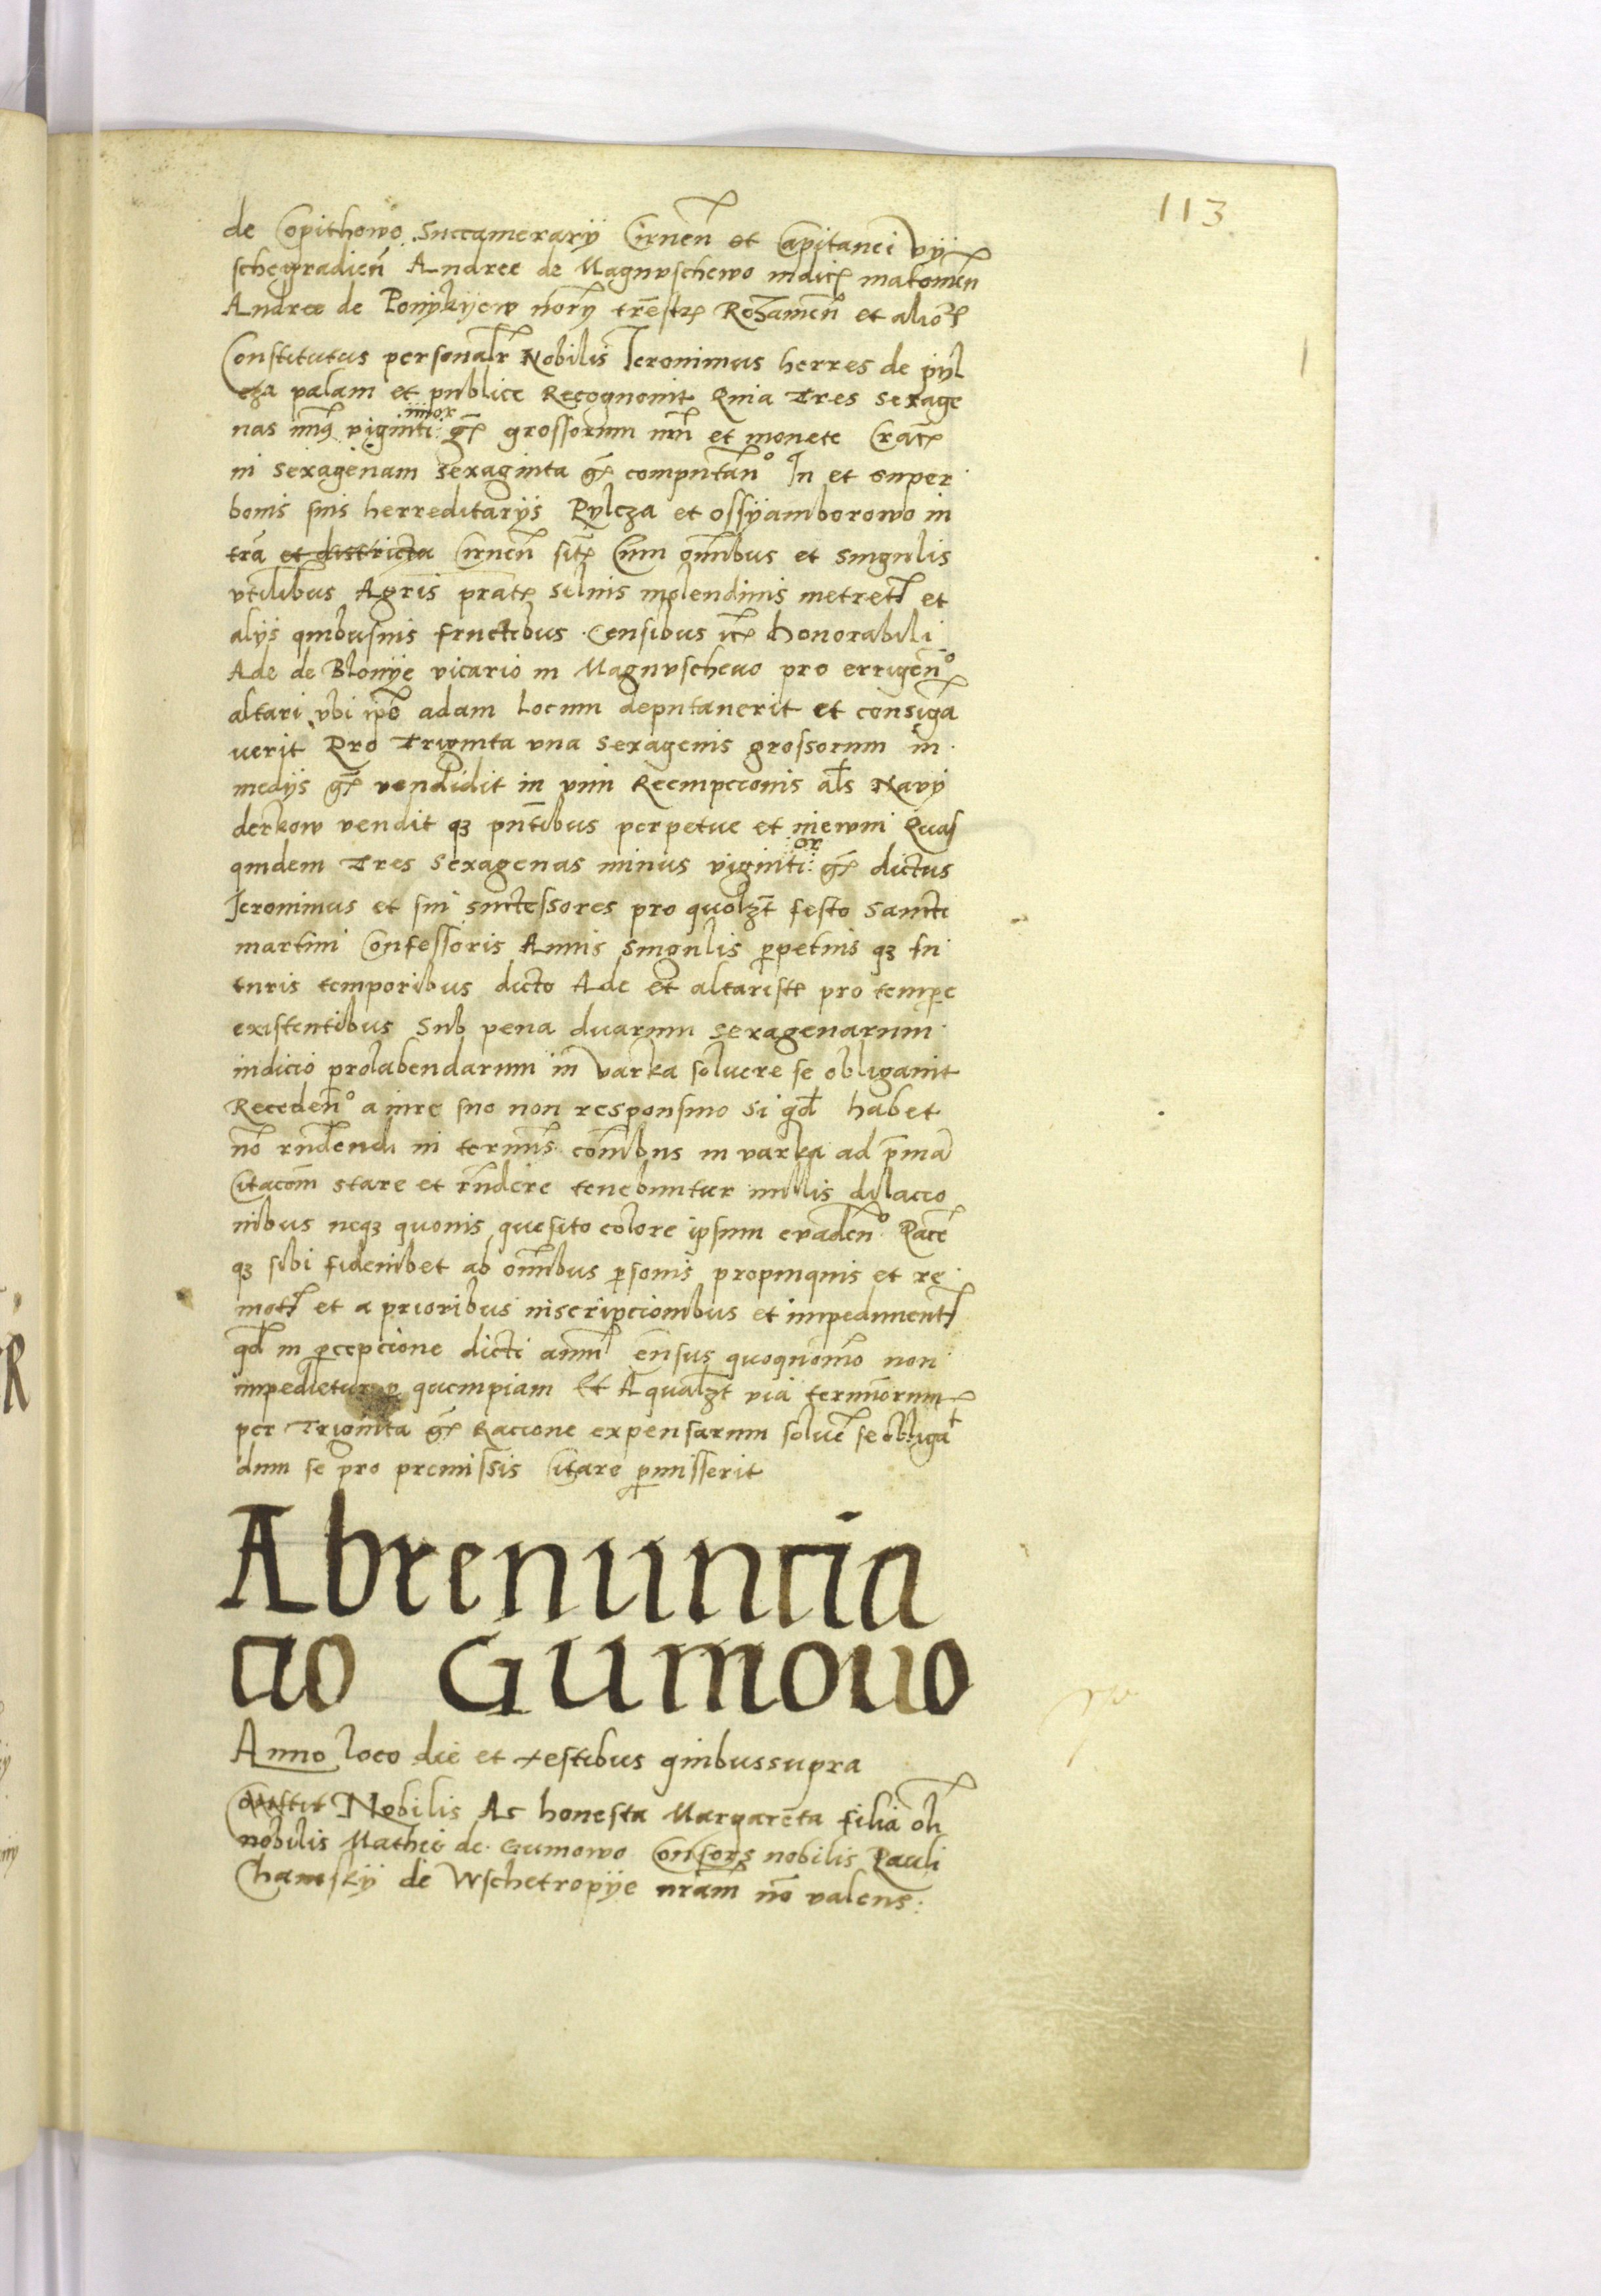 113
de Copithowo Succamerarÿ Cirnen̄ et Capitanei Vÿ
schegradien̄ Andree de Magnuschewo iudicꝭ makouien
Andree de Ponÿkÿew no͞rÿ tre͞strꝭ Rozamen̄ et alioꝝ
Constitutus personal͞r Nobilis Jeronimus herres de pÿl
cza palam et publice Recognouit Quia Tres sexage
nas min9 viginti iiiior gꝭ grossorum nu͞m et monete Cracꝭ
in sexagenam sexaginta gꝭ computan͞o In et super
bonis suis herreditarÿs Pÿlcza et ossÿamborowo in
tra͞ et districtu Cirnen̄ sitꝭ Cum omi͞bus et singulis
vtilibus Agris pratꝭ siluis molendinis metretꝭ et
alÿs quibusuis fructibus Censibus itꝭ honorabili
Ade de Blonÿe vicario in Magnuscheuo pro errigen͞o
altari vbi ip͞e adam Locum deputauerit et consigna
uerit Pro Triginta vna sexagenis grossorum in
medÿs gꝭ vendidit in vim Reempccionis al͞s Navÿ
derkow vendit qꝫ pn͞tibus perpetue et in ewm Quas
quidem Tres Sexagenas minus viginti iiiior gꝭ dictus
Jeronimus et sui successores pro quolzt festo Sancti
martini Confessoris Annis singulis ꝑpetuis qꝫ fu
turis temporibus dicto Ade et altaristꝭ pro tempe͞
existentibus Sub pena duarum sexagenarum
iudicio prolabendarum in varka soluere se obligauit
Receden͞o a iure suo non responsiuo si qd͞ habet
no͞ rn͞dendi in termi͞s comi͞bus in varka ad p͞ma͞
Citacom͞ stare et rn͞dere tenebuntur nullis dilaccio
nibus neqꝫ quouis quesito colore ipsum evaden͞o Pace͞
qꝫ sibi fideiubet ab omi͞bus ꝑsonis propinquis et re
motꝭ et a prioribus inscripcionibus et impedimentꝭ
qd͞ in ꝑcepcione dicti anni͞ census quoquomo͞ non
impedietur ꝑ quempiam Et A qualzt via terminorum
per Triginta gꝭ Racione expensarum solue͞ se obligat
dum se pro premissis Citare ꝑmisserit
Abrenuncia
cio Gumowo
Anno loco die et testibus quibus supra
Constit Nobilis Ac honesta Margareta filia oli͞
nobilis Mathei de Gumowo Consors nobilis Pauli
Chamskÿ de Wschetropÿe nra͞m no͞ valens